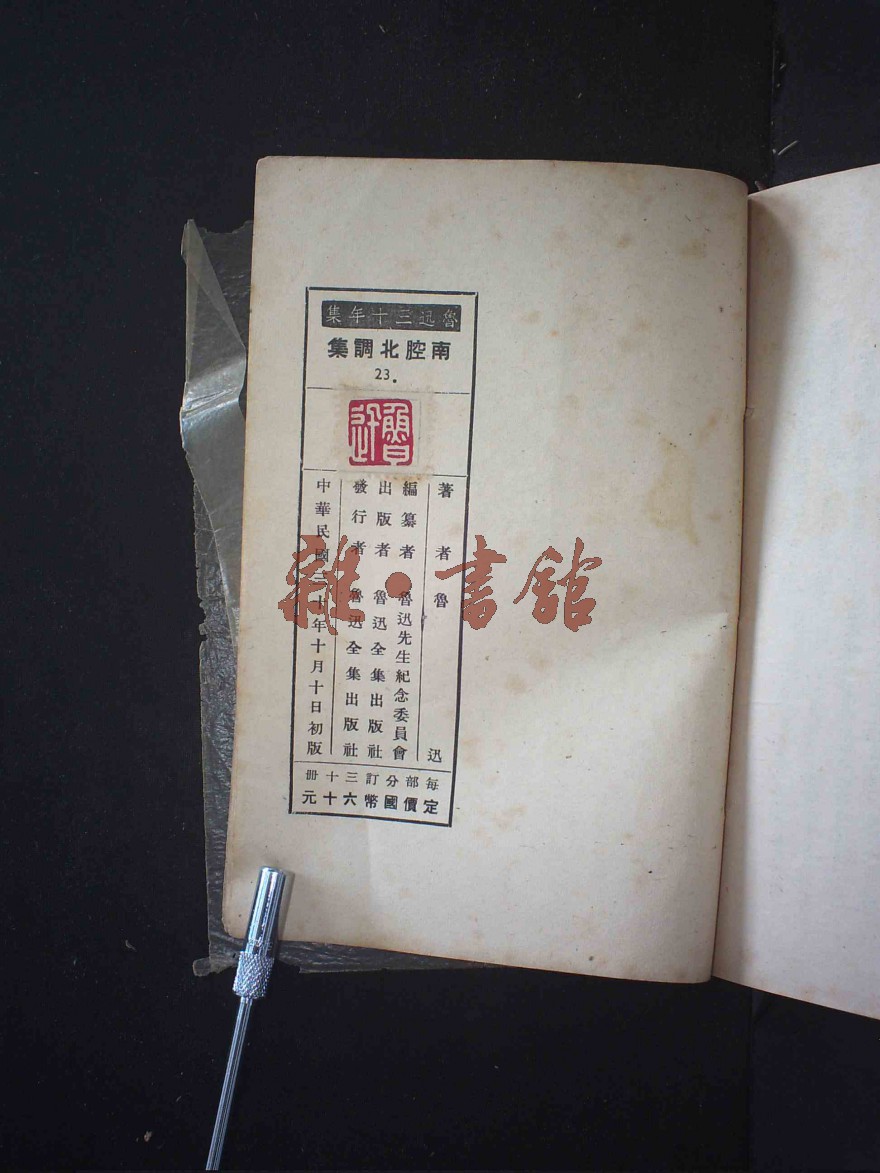 魯迅三十年集
南腔北調集
23.
魯迅
著者 魯迅
編纂者 魯迅先生紀念委員會
出版者 魯迅全集出版社
發行者 魯迅全集出版社
中華民國三十年十月十日初版
每部分訂三十冊
定價國幣六十元
雜·書館